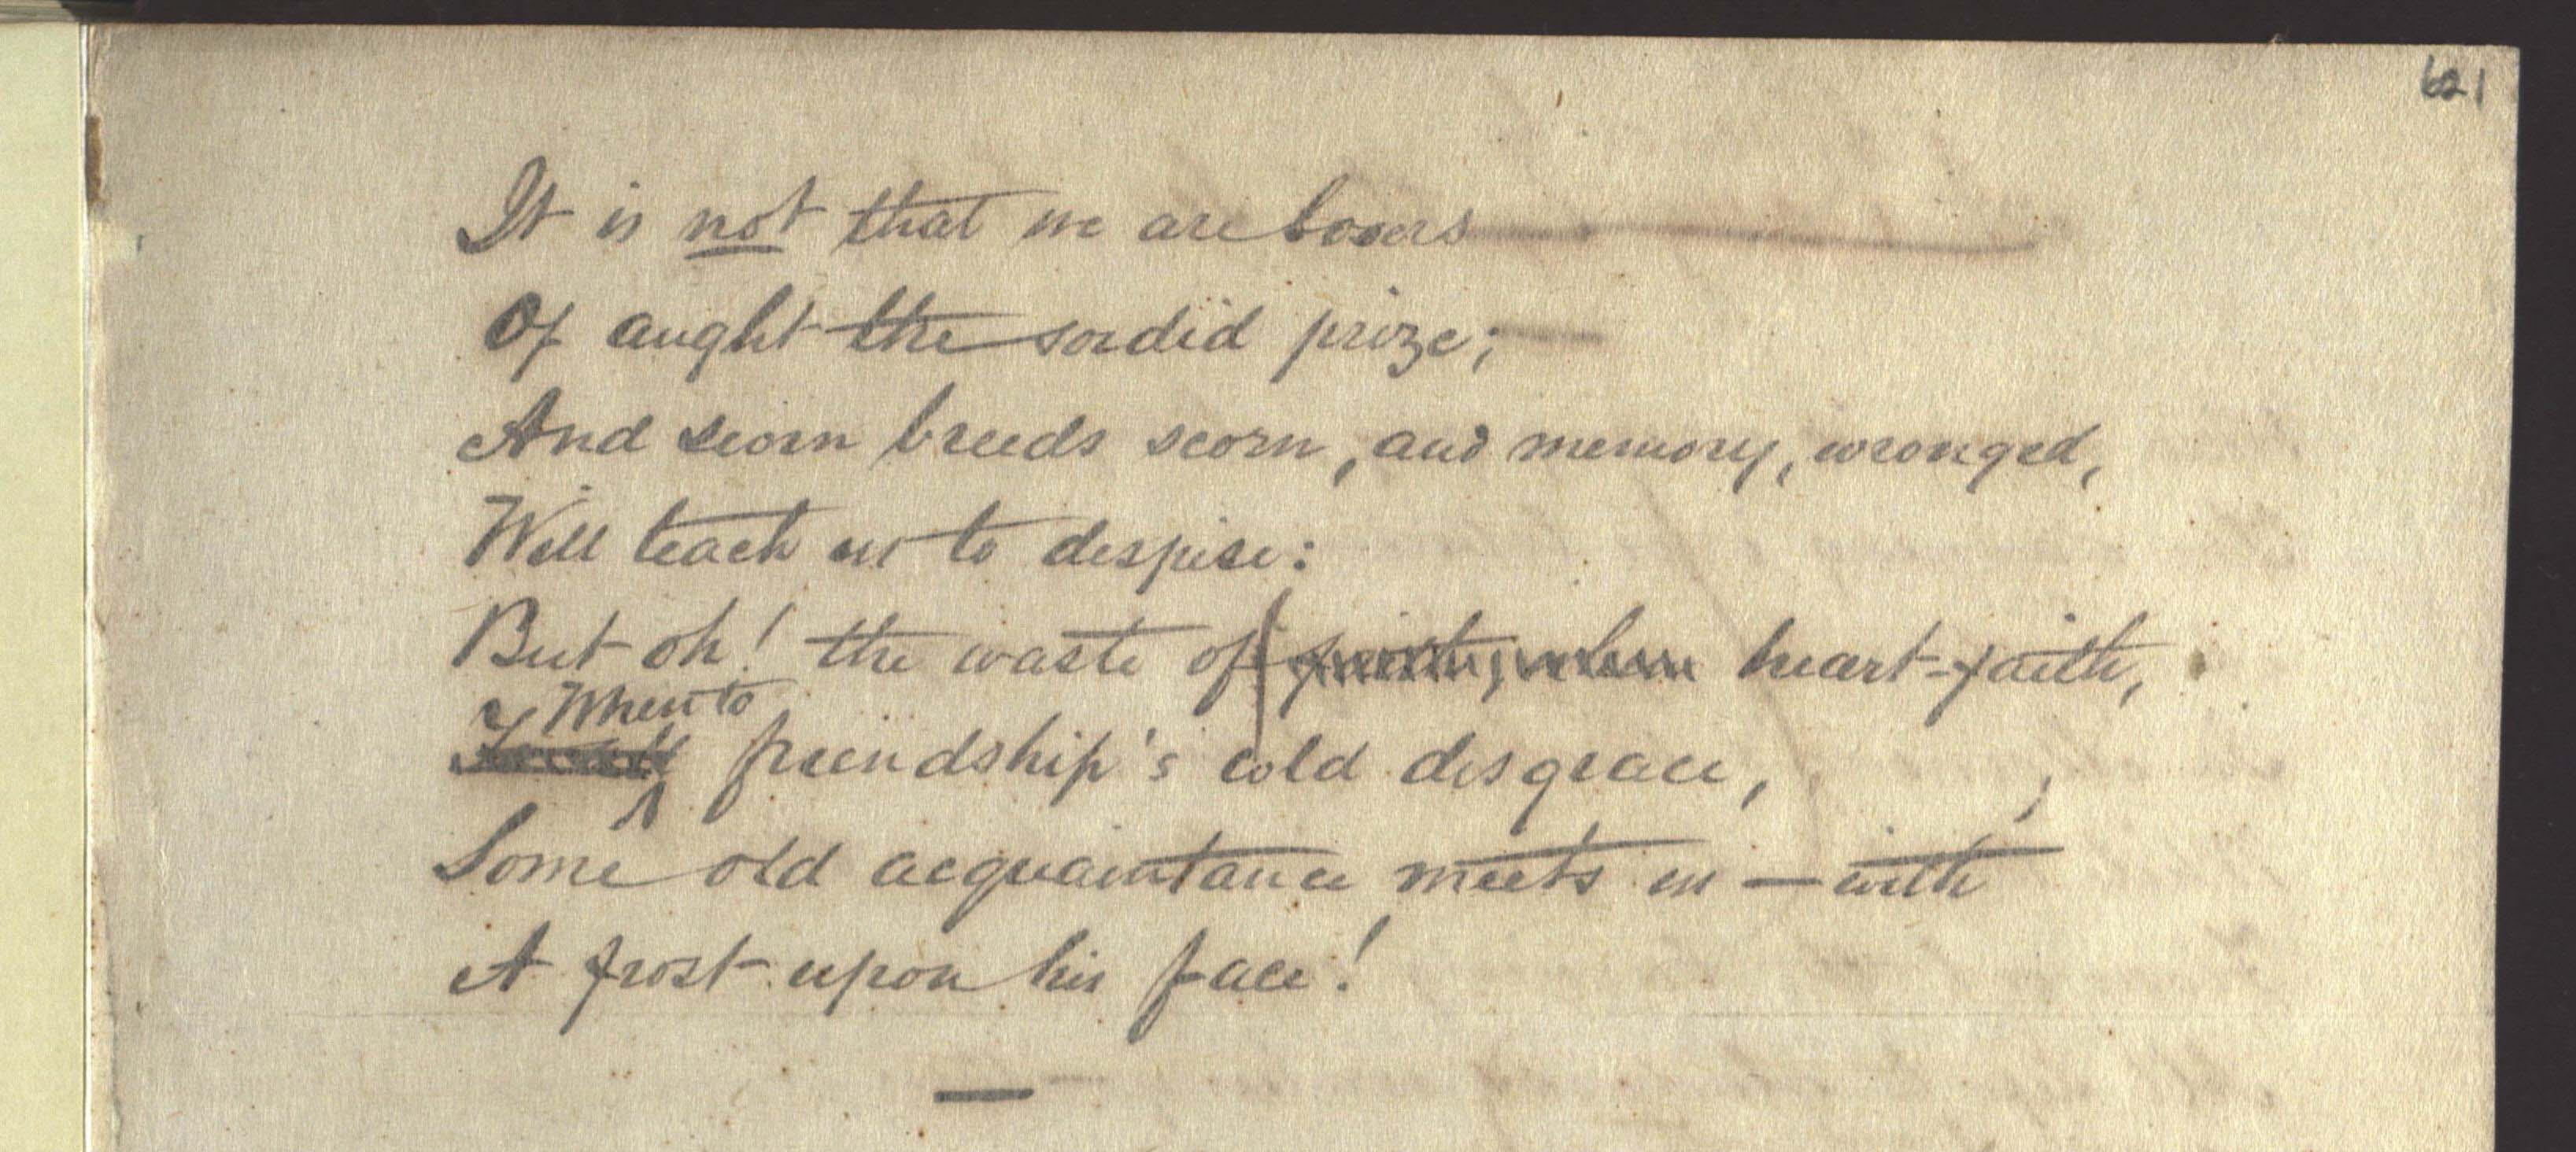 621
It is not that we are losers
Of aught the sordid prize;
And scorn breeds scorn, and memory, wronged,
Will teach us to despise:
But oh! the waste of faith, when heart-faith,
When to
friendship's cold disgrace,
Some old acquaintance meets us — with
A frost upon his face!